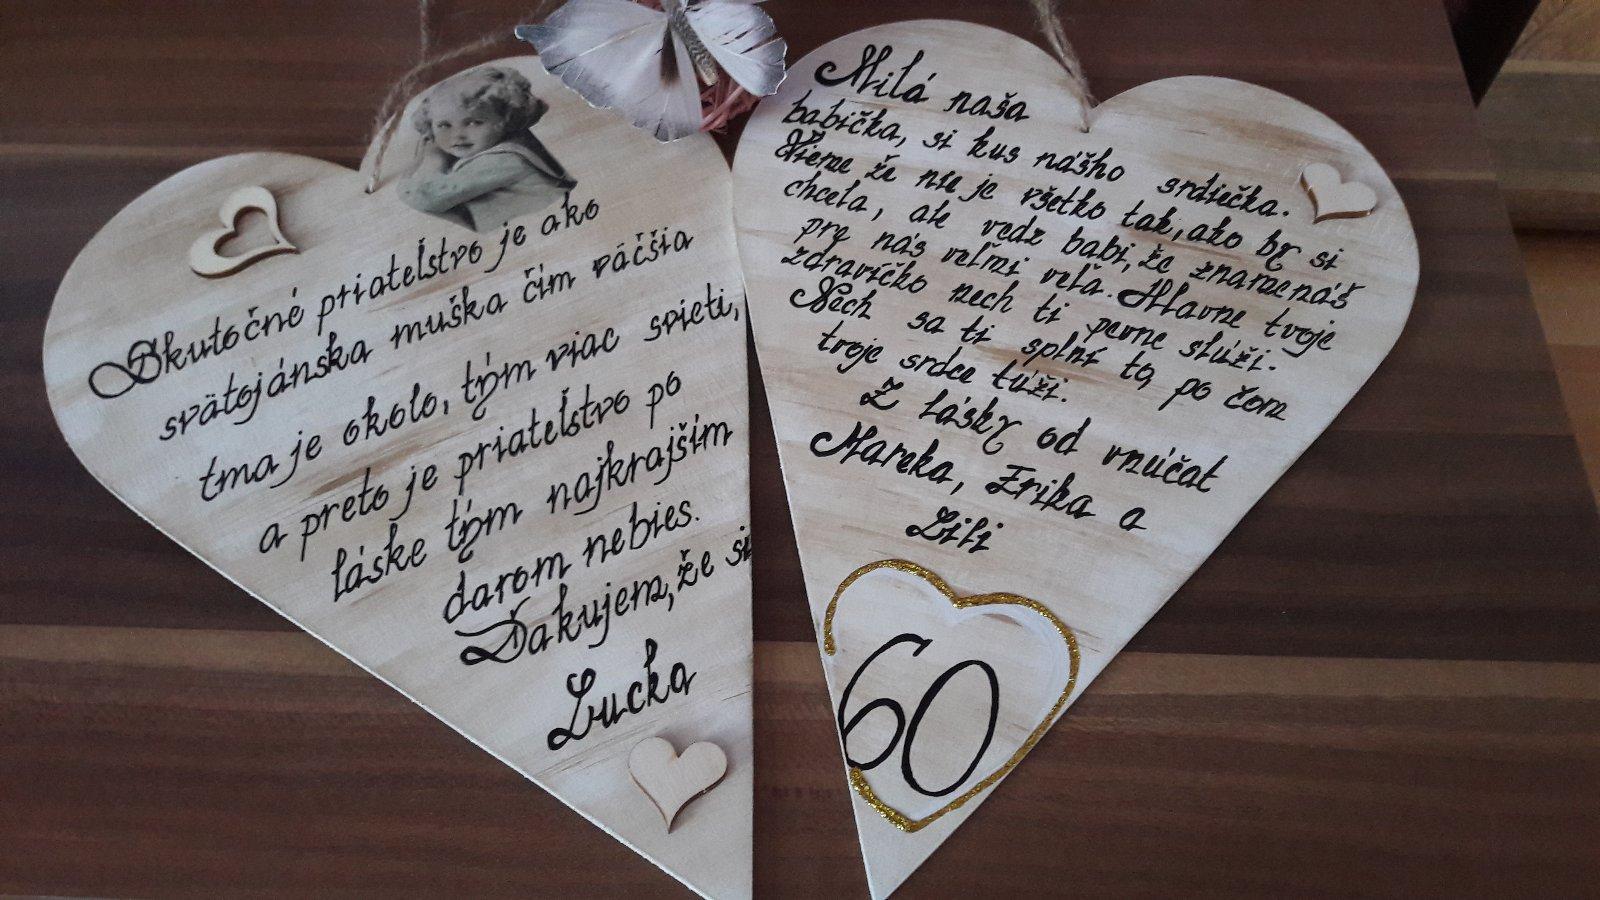 Skutočné priateľstvo je ako
svätojánska muška čím väčšia
tma je okolo, tým viac svieti,
a preto je priateľstvo po
láske tým najkrajším
darom nebies.
Ďakujem, že si
Lucka
Milá naša
babička, si kus nášho srdiečka.
Vieme že nie je všetko tak, ako by si
chcela, ale vedz babi, že znamenáš
pre nás veľmi veľa. Hlavne tvoje
zdravíčko nech ti pevne slúži.
Nech sa ti splní to po čom
tvoje srdce túži.
Z lásky od vnúčat
Mareka, Erika a
Lili
60